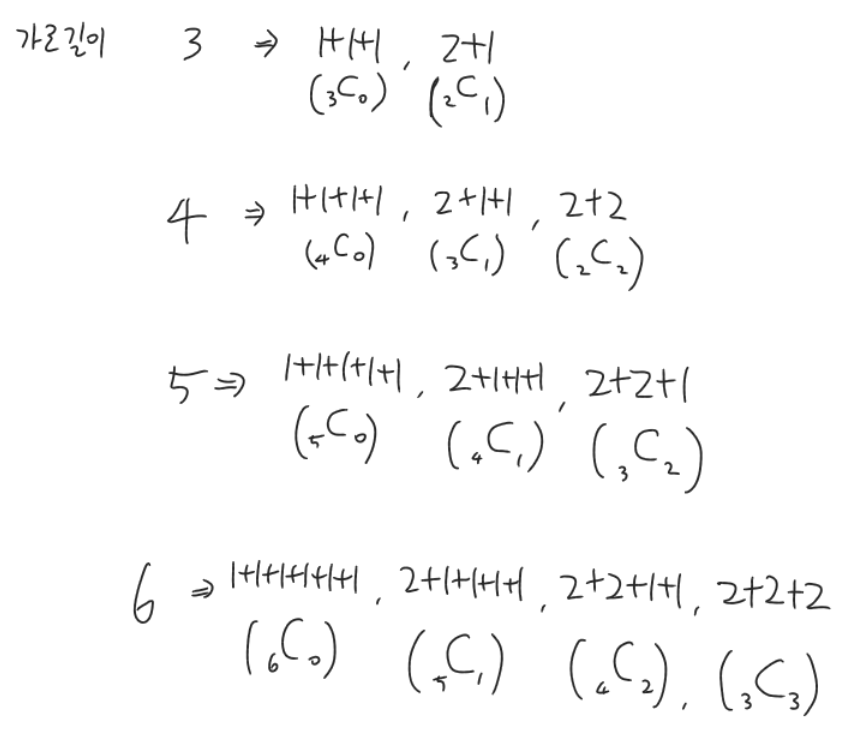 가로길이 3 ⇒ 1+1+1 , 2+1
(₃C₀) (₂C₁)
4 ⇒ 1+1+1+1 , 2+1+1 , 2+2
(₄C₀) (₃C₁) (₂C₂)
5 ⇒ 1+1+1+1+1 , 2+1+1+1 , 2+2+1
(₅C₀) (₄C₁) (₃C₂)
6 ⇒ 1+1+1+1+1+1 , 2+1+1+1+1 , 2+2+1+1 , 2+2+2
(₆C₀) (₅C₁) (₄C₂) , (₃C₃)